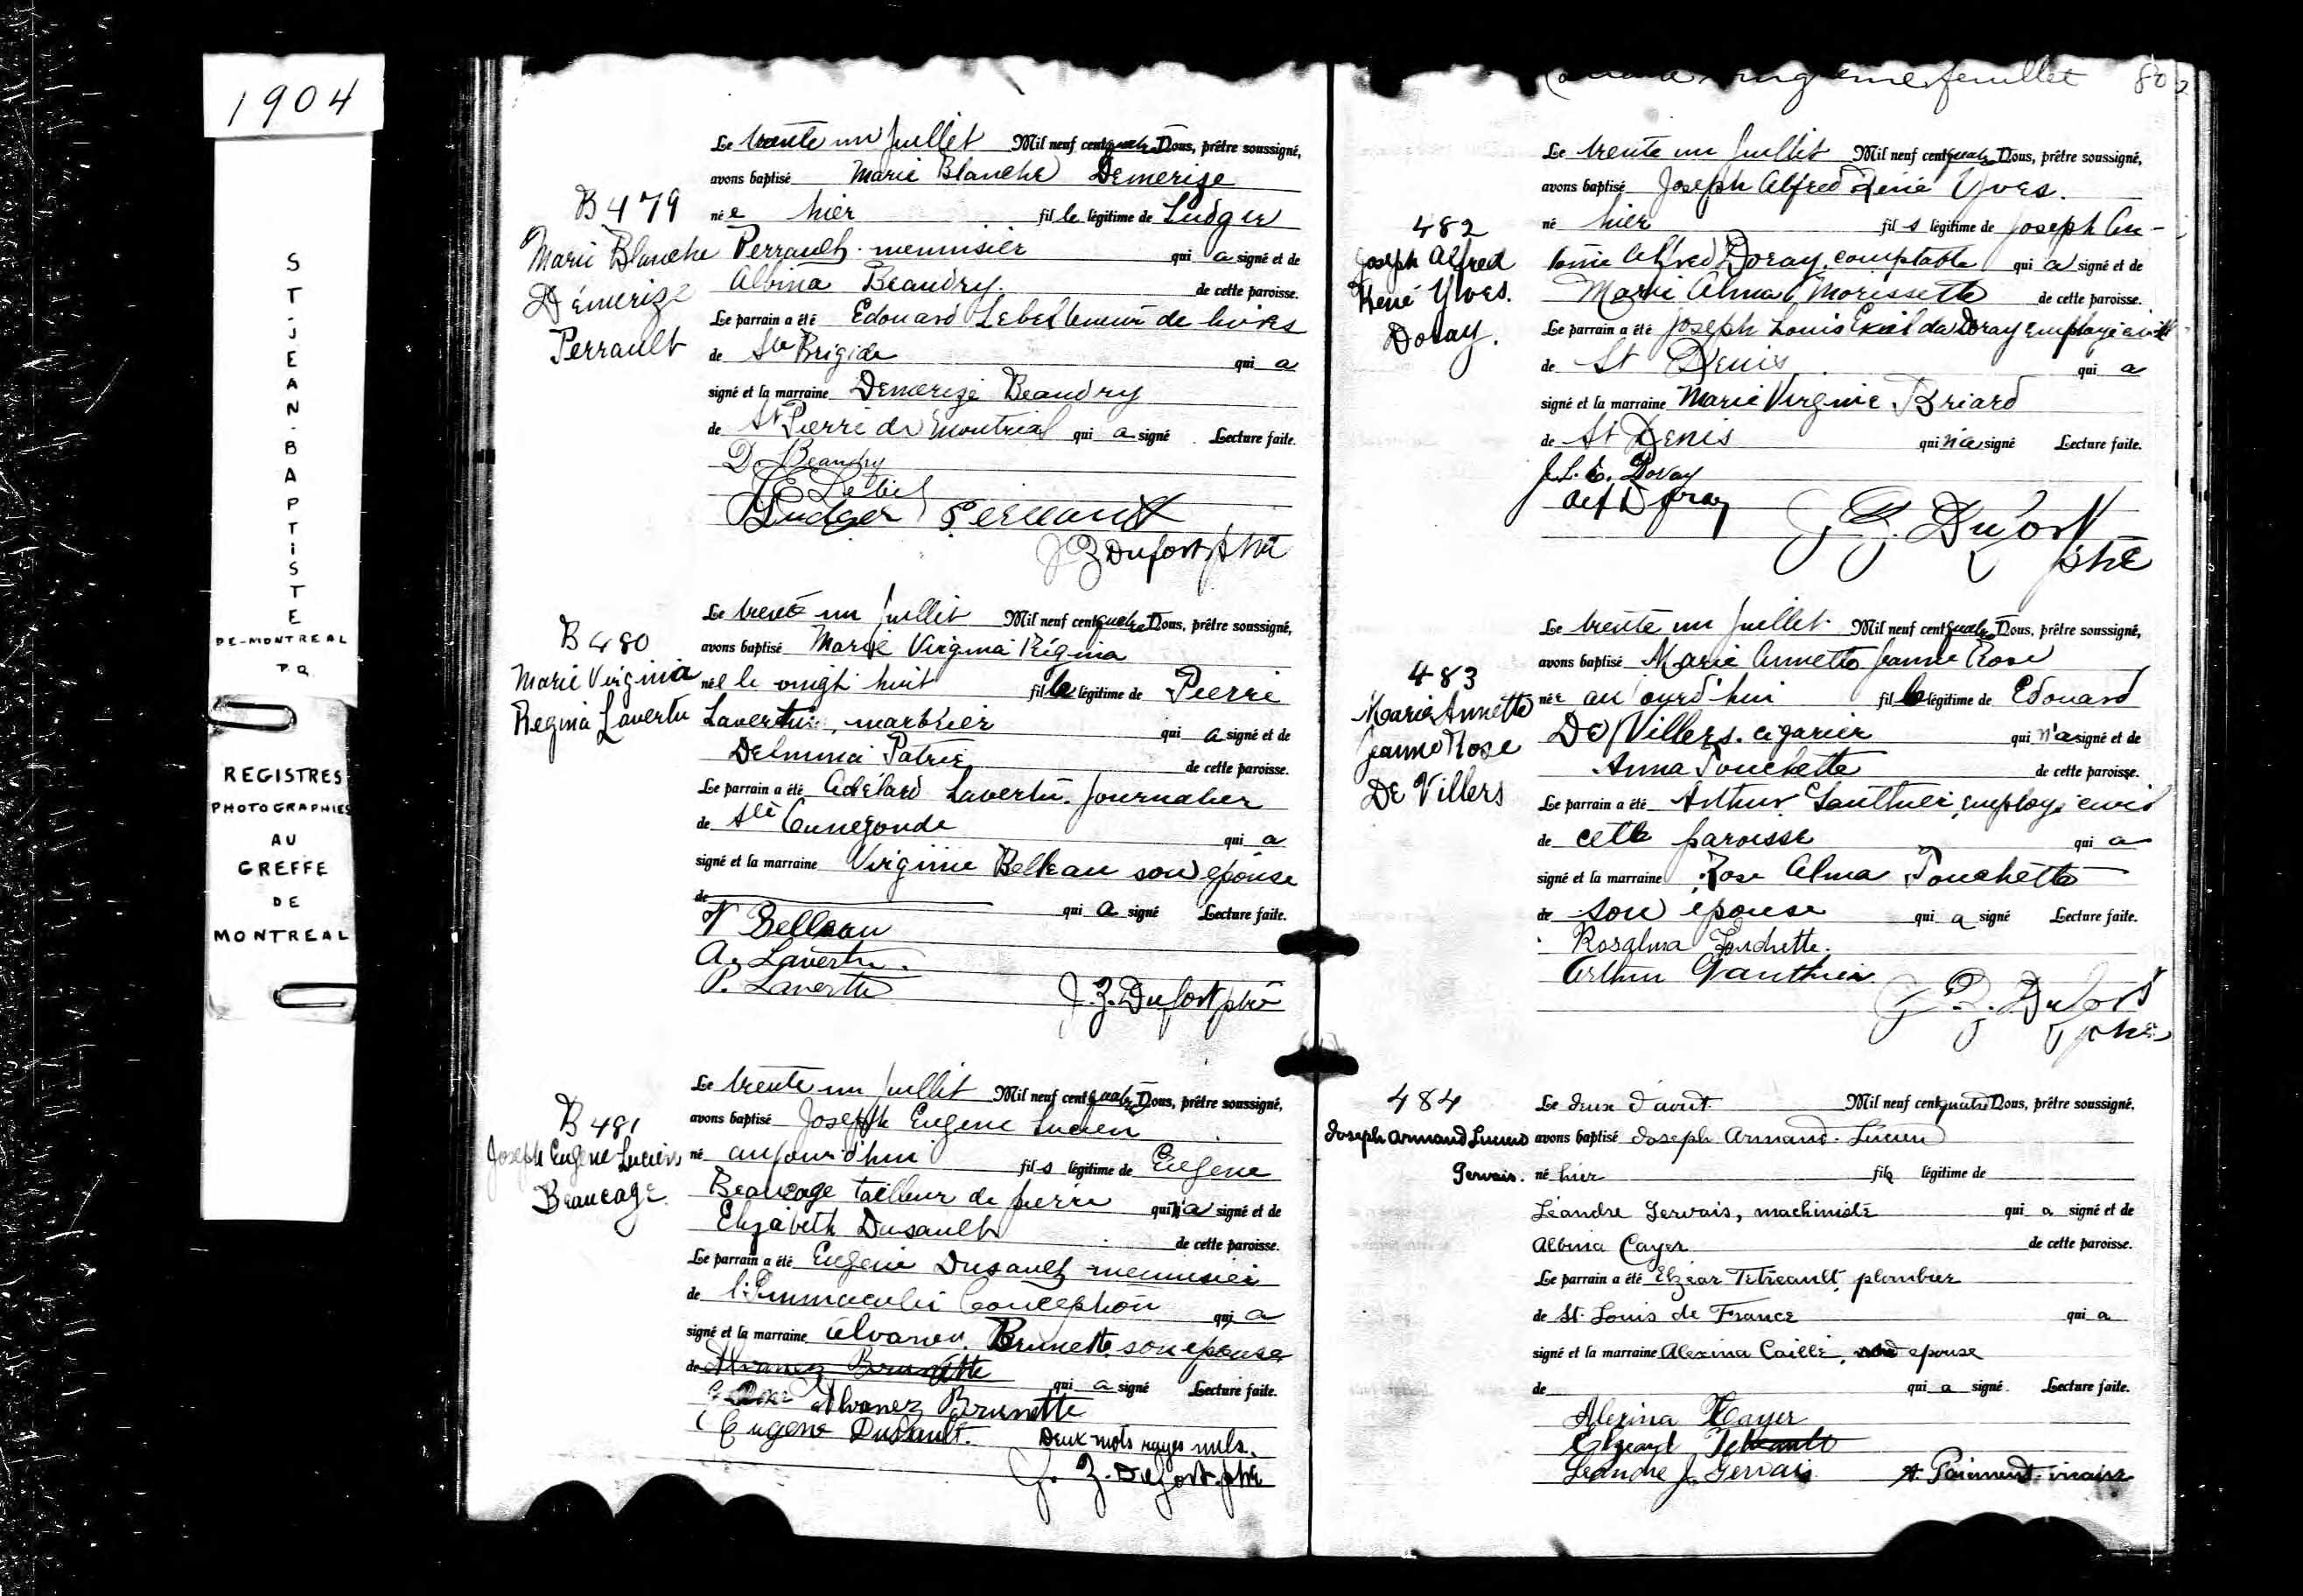 1904
ST-JEAN-BAPTISTE
DE-MONTREAL
P.Q.
REGISTRES
PHOTOGRAPHIES
AU
GREFFE
DE
MONTREAL
B 479
Marie Blanche
Démerize
Perrault
Le trente un Juillet Mil neuf cent quatre Nous, prêtre soussigné,
avons baptisé Marie Blanche Demerize
née hier fille légitime de Ludger
Perrault menuisier qui a signé et de
Albina Beaudry. de cette paroisse.
Le parrain a été Edouard Lebel teneur de livres
de Ste Brigide qui a
signé et la marraine Demerize Beaudry
de St Pierre de Montréal qui a signé. Lecture faite.
D. Beaudry
E Lebel
Ludger Perrault
J Z Dufort ptre
B 480
Marie Virginia
Regina Lavertu
Le trente un Juillet Mil neuf cent quatre Nous, prêtre soussigné,
avons baptisé Marie Virginia Régina
née le vingt huit fille légitime de Pierre
Lavertu, marbrier qui a signé et de
Delmina Patrie de cette paroisse.
Le parrain a été Adélard Lavertu. Journalier
de Ste Cunégonde qui a
signé et la marraine Virginie Belleau son épouse
de qui a signé Lecture faite.
V Belleau
A. Lavertu.
P. Lavertu
J. Z. Dufort ptre
B 481
Joseph Eugène Lucien
Beaucage
Le trente un Juillet Mil neuf cent quatre Nous, prêtre soussigné,
avons baptisé Joseph Eugene Lucien
né aujourd'hui fils légitime de Eugene
Beaucage tailleur de pierre qui n'a signé et de
Elizabeth Dusault de cette paroisse.
Le parrain a été Eugene Dusault menuisier
de l'Immaculée Conception qui a
signé et la marraine Brunette son épouse
de Alvanez Brunette qui a signé Lecture faite.
Alvanez Brunette
Eugene Dusault. Deux mots rayés nuls.
J. Z. Dufort ptre
feuillet 80
482
Joseph Alfred
René Yves.
Doray.
Le trente un Juillet Mil neuf cent quatre Nous, prêtre soussigné,
avons baptisé Joseph Alfred René Yves.
né hier fils légitime de Joseph An-
toine Alfred Doray, comptable qui a signé et de
Marie Alma Morissette de cette paroisse.
Le parrain a été Joseph Louis Doray employé civil
de St Denis qui a
signé et la marraine Marie Virginie Briard
de St Denis qui n'a signé Lecture faite.
J. L. E. Doray
Alf Doray
J Z. Dufort
ptre
483
Marie Annette
Jeanne Rose
De Villers
Le trente un Juillet Mil neuf cent quatre Nous, prêtre soussigné,
avons baptisé Marie Annette Jeanne Rose
née aujourd'hui fille légitime de Edouard
De Villers. cigarier qui n'a signé et de
Anna Touchette de cette paroisse.
Le parrain a été Arthur Gauthier, employé civil
de cette paroisse qui a
signé et la marraine Rose Alma Touchette
de son épouse qui a signé Lecture faite.
Rosalma Touchette.
Arthur Gauthier.
J. Z. Dufort
ptre
484
Joseph Armand Lucien
Gervais.
Le deux d'août Mil neuf cent quatre Nous, prêtre soussigné,
avons baptisé Joseph Armand Lucien
né hier fils légitime de
Léandre Gervais, machiniste qui a signé et de
Albina Cayer de cette paroisse.
Le parrain a été Elzéar Tétreault, plombier
de St. Louis de France qui a
signé et la marraine Alexina Caillé, son épouse
de qui a signé. Lecture faite.
Alexina Cayer
Elzéard Tetreault
Leandre J. Gervais A. Paiement vicaire